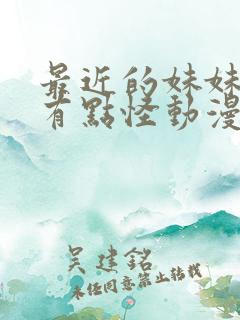 最近的妹妹
有點怪動漫
吴建銘
未經同意禁止轉載